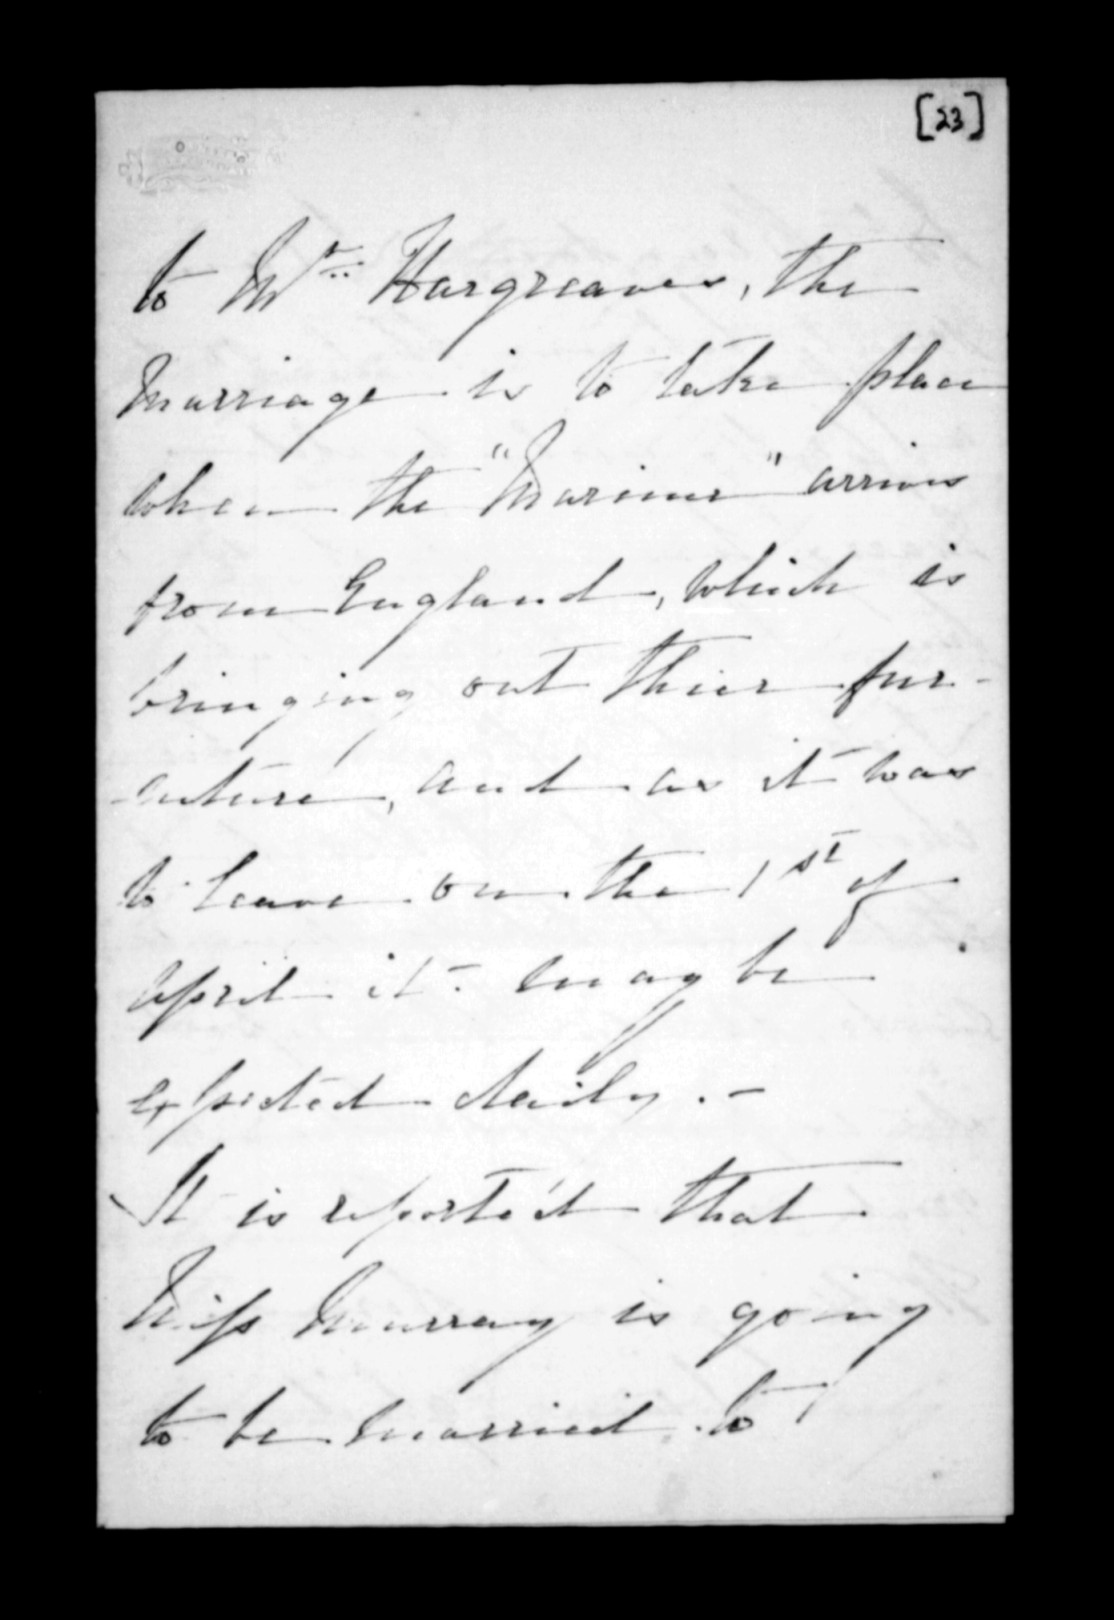 [23]
to Mr. Hargreaves, the
marriage is to take place
when the "Mariner" arrives
from England, which is
bringing out thier fur-
niture, and as it was
to leave on the 1st of
April it may be
expected daily. -
It is reported that
Miss Murray is going
to be married to